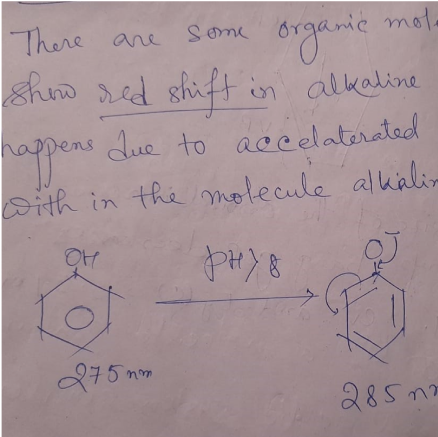 There are some organic mol
show red shift in alkaline
happens due to accelaterated
with in the molecule alkalin
OH
pH > 8
O
275 nm
285 nm